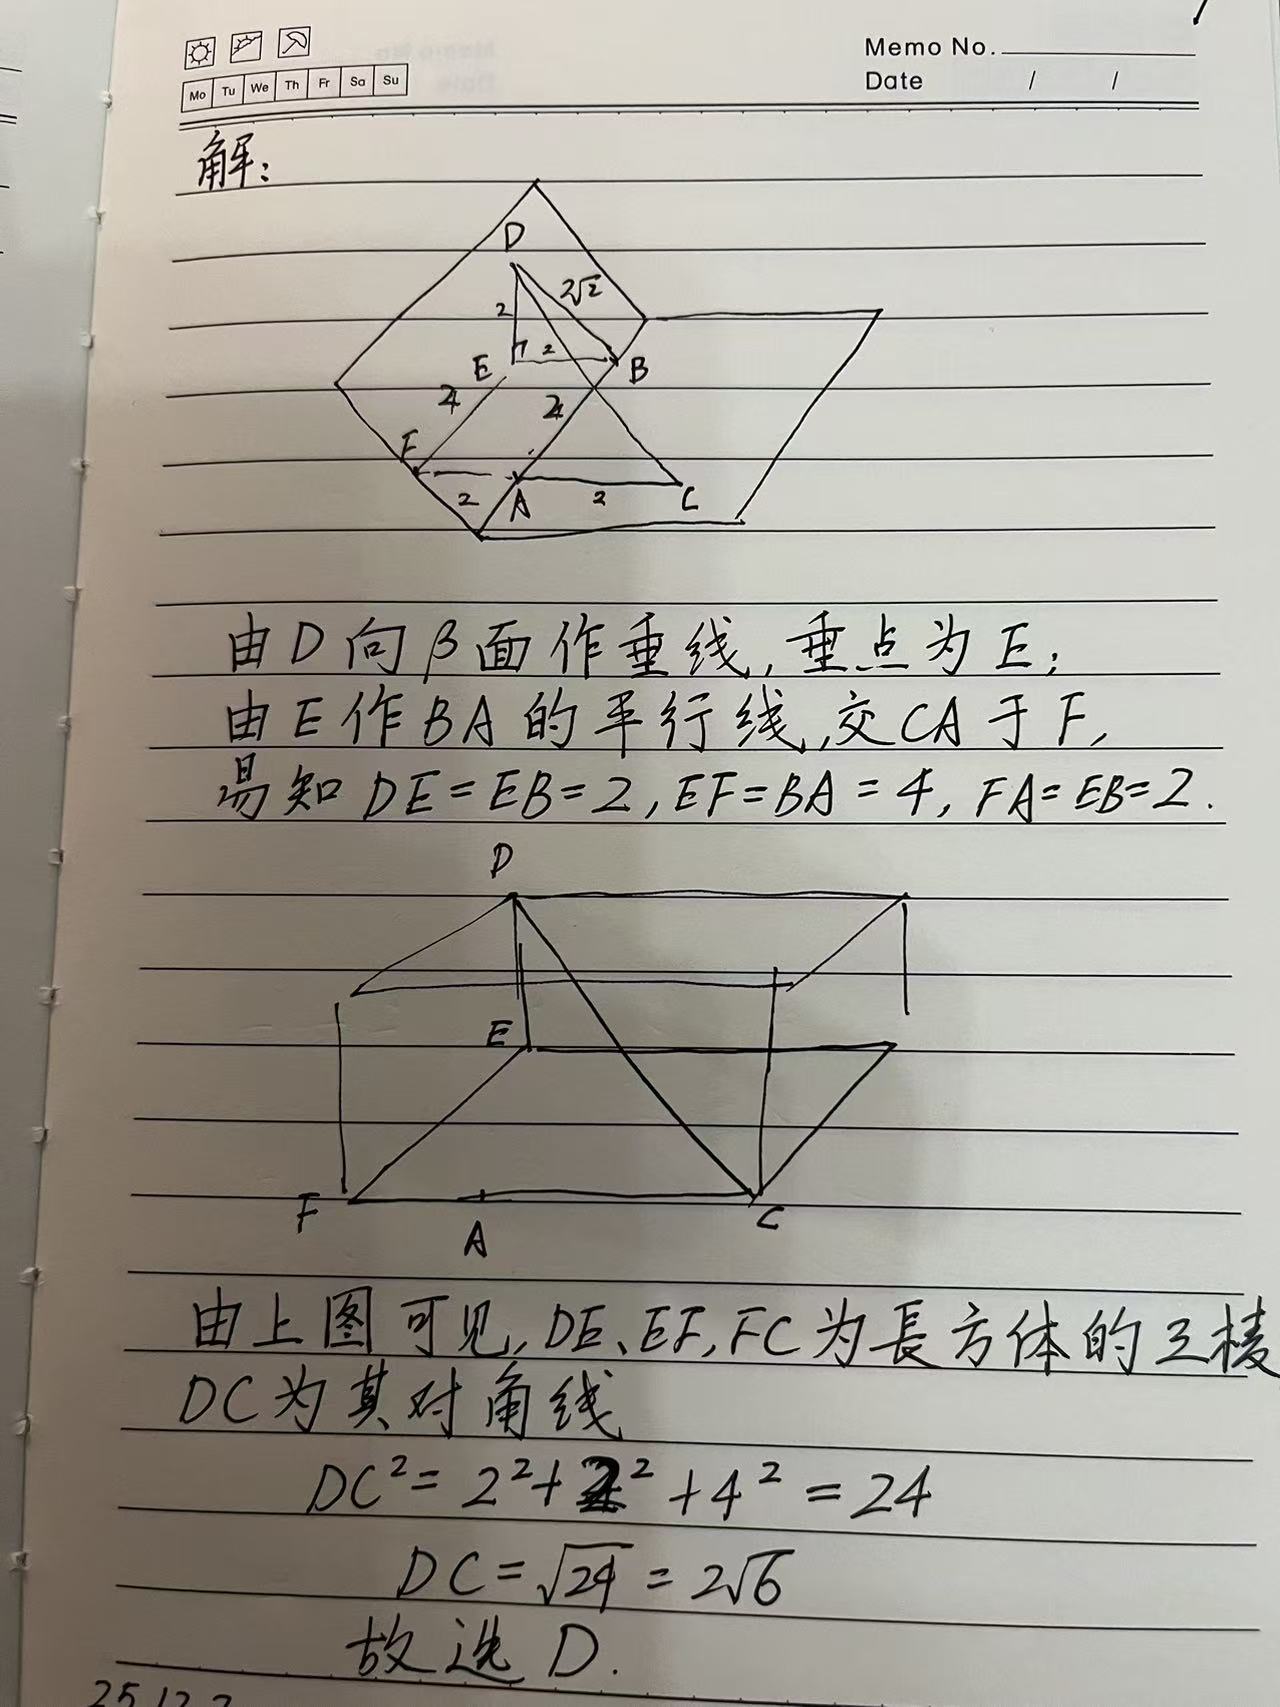 Memo No.
Mo Tu We Th Fr Sa Su
Date / /
解:
D
2√2
2
E
2
B
4
F
2
A
2
C
由D向β面作垂线,垂点为E;
由E作BA的平行线,交CA于F,
易知DE=EB=2,EF=BA=4,FA=EB=2.
D
E
F
A
C
由上图可见,DE、EF,FC为長方体的三棱
DC为其对角线
DC²=2²+2²+4²=24
DC=√24=2√6
故选D.